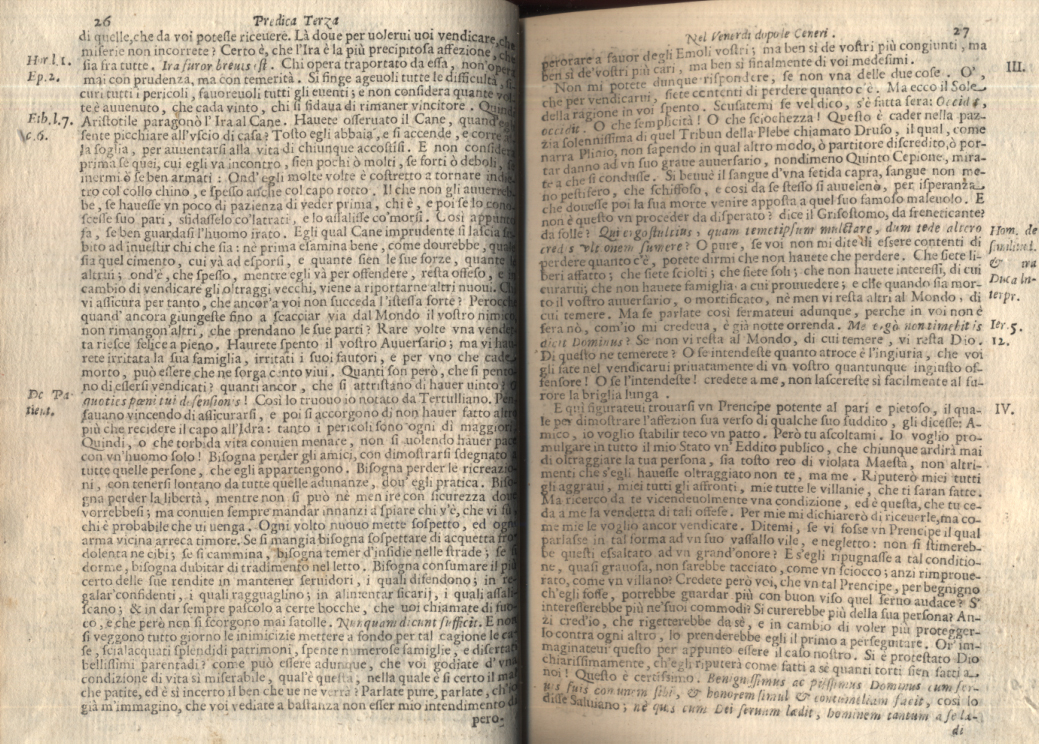 26 Predica Terza
di quelle, che da voi potesse riceuere. Là doue per uolerui uoi vendicare, che
miserie non incorrete? Certo è, che l'Ira è la più precipitosa affezione, che
Hor. l. 1. sia fra tutte. Ira furor breuis est. Chi opera traportato da essa, non'opera
Ep. 2. mai con prudenza, ma con temerità. Si finge ageuoli tutte le difficultà, si-
curi tutti i pericoli, fauoreuoli tutti gli euenti; e non considera quante vol-
te è auuenuto, che cada vinto, chi si fidaua di rimaner vincitore. Quindi
Eth. l. 7. Aristotile paragonò l'Ira al Cane. Hauete osseruato il Cane, quand'egli
c. 6. sente picchiare all'vscio di casa? Tosto egli abbaia, e si accende, e corre
la soglia, per auuentarsi alla vita di chiunque accostisi. E non considera
prima se quei, cui egli va incontro, sien pochi ò molti, se forti ò deboli,
inermi ò se ben armati: Ond'egli molte volte è costretto a tornare indie-
tro col collo chino, e spesso anche col capo rotto. Il che non gli auuerreb-
be, se hauesse vn poco di pazienza di veder prima, chi è, e poi se lo cono-
scesse suo pari, sfidasselo co'latrati, e lo assalisse co'morsi. Così appunto
fa, se ben guardasi l'huomo irato. Egli qual Cane imprudente si lascia su-
bito ad inuestir chi che sia: nè prima esamina bene, come dourebbe, quale
sia quel cimento, cui và ad esporsi, e quante sien le sue forze, quante le
altrui; ond'è, che spesso, mentre egli và per offendere, resta offeso, e in
cambio di vendicare gli oltraggi vecchi, viene a riportarne altri nuoui. Chi
vi assicura per tanto, che ancor'a voi non succeda l'istessa sorte? Perocche
quand'ancora giungeste fino a scacciar via dal Mondo il vostro nimico
non rimangon'altri, che prendano le sue parti? Rare volte vna vendet-
ta riesce felice a pieno. Haurete spento il vostro Auuersario; ma vi hau-
rete irritata la sua famiglia, irritati i suoi fautori, e per vno che cade
morto, può essere che ne sorga cento viui. Quanti son però, che si pento-
no di essersi vendicati? quanti ancor, che si attristano di hauer uinto? O
De Pa- quoties pœnitui defensionis! Così lo truouo io notato da Tertulliano. Pen-
tient. sauano vincendo di assicurarsi, e poi si accorgono di non hauer fatto altro
più che recidere il capo all'Idra: tanto i pericoli sono ogni dì maggiori
Quindi, o che torbida vita conuien menare, non si uolendo hauer pace
con vn'huomo solo! Bisogna perder gli amici, con dimostrarsi sdegnato a
tutte quelle persone, che egli appartengono. Bisogna perder le ricreazio-
ni, con tenersi lontano da tutte quelle adunanze, dou'egli pratica. Biso-
gna perder la libertà, mentre non si può nè men ire con sicurezza doue
vorrebbesi; ma conuien sempre mandar innanzi a spiare chi v'è, che vi fà,
chi è probabile che ui uenga. Ogni volto nuouo mette sospetto, ed ogni
arma vicina arreca timore. Se si mangia bisogna sospettare di acquetta frau-
dolenta ne cibi; se si cammina, bisogna temer d'insidie nelle strade; se si
dorme, bisogna dubitar di tradimento nel letto. Bisogna consumare il più
certo delle sue rendite in mantener seruidori, i quali difendono; in re-
galar'confidenti, i quali ragguaglino; in alimentar sicarij, i quali assali-
scano; & in dar sempre pascolo a certe bocche, che uoi chiamate di fuo-
co, e che però non si scorgono mai satolle. Nunquam dicunt sufficit. E non
si veggono tutto giorno le inimicizie mettere a fondo per tal cagione le ca-
se, scialacquati splendidi patrimoni, spente numerose famiglie, e disertati
bellissimi parentadi? come può essere adunque, che voi godiate d'vna
condizione di vita sì miserabile, qual'è questa, nella quale è sì certo il male
che patite, ed è sì incerto il ben che ue ne verrà? Parlate pure, parlate, ch'io
già m'immagino, che voi vediate a bastanza non esser mio intendimento di
pero-
Nel Venerdì dopo le Ceneri. 27
perorare a fauor degli Emoli vostri; ma ben sì de vostri più congiunti, ma
ben sì de'vostri più cari, ma ben sì finalmente di voi medesimi.
Non mi potete dunque rispondere, se non vna delle due cose. O', III.
che per vendicarui, siete contenti di perdere quanto c'è. Ma ecco il Sole
della ragione in voi spento. Scusatemi se vel dico, s'è fatta sera: Occidit,
occidit. O che semplicità! O che sciochezza! Questo è cader nella paz-
zia solennissima di quel Tribun della Plebe chiamato Druso, il qual, come
narra Plinio, non sapendo in qual altro modo, ò partitore discredito, ò por-
tar danno ad vn suo graue auuersario, nondimeno Quinto Cepione, mira-
te a che si condusse. Si beuuè il sangue d'vna fetida capra, sangue non me-
no pestifero, che schiffoso, e così da se stesso si auuelenò, per isperanza
che douesse poi la sua morte venire apposta a quel suo famoso maleuolo. E
non è questo vn proceder da disperato? dice il Grisostomo, da freneticante?
da folle? Qui ergo stultius, quam temetipsum mulctare, dum te de altero Hom. de
credis vltionem sumere? O pure, se voi non mi dite di essere contenti di simult.
perdere quanto c'è, potete dirmi che non hauete che perdere. Che siete li- & ira
beri affatto; che siete sciolti; che siete soli; che non hauete interessi, di cui Duca in-
curarui; che non hauete famiglia a cui prouuedere; e che quando sia mor- terpr.
to il vostro auuersario, o mortificato, nè men vi resta altri al Mondo, di
cui temere. Ma se parlate così fermateui adunque, perche in voi non è
sera nò, com'io mi credeua, è già notte orrenda. Me ergò non timebitis Ier. 5.
dicit Dominus? Se non vi resta al Mondo, di cui temere, vi resta Dio. 12.
Di questo ne temerete? O se intendeste quanto atroce è l'ingiuria, che voi
gli fate nel vendicarui priuatamente di vn vostro quantunque ingiusto of-
fensore! O se l'intendeste! credete a me, non lascereste sì facilmente al fu-
rore la briglia lunga.
E qui figurateui trouarsi vn Prencipe potente al pari e pietoso, il qua- IV.
le per dimostrare l'affezion sua verso di qualche suo suddito, gli dicesse: A-
mico, io voglio stabilir teco vn patto. Però tu ascoltami. Io voglio pro-
mulgare in tutto il mio Stato vn'Eddito publico, che chiunque ardirà mai
di oltraggiare la tua persona, sia tosto reo di violata Maestà, non altri-
menti che s'egli hauesse oltraggiato non te, ma me. Riputerò miei tutti
gli aggraui, miei tutti gli affronti, mie tutte le villanie, che ti saran fatte.
Ma ricerco da te vicendeuolmente vna condizione, ed è questa, che tu ce-
da a me la vendetta di tali offese. Per mie mi dichiarerò di riceuerle, ma co-
me mie le voglio ancor vendicare. Ditemi, se vi fosse vn Prencipe il qual
parlasse in tal forma ad vn suo vassallo vile, e negletto: non si stimereb-
be questi essaltato ad vn grand'onore? E s'egli ripugnasse a tal conditio-
ne, quasi grauosa, non sarebbe tacciato, come vn sciocco; anzi rimproue-
rato, come vn villano? Credete però voi, che vn tal Prencipe, per benigno
ch'egli fosse, potrebbe guardar più con buon viso quel seruo audace? S'
interesserebbe più ne'suoi commodi? Si curerebbe più della sua persona? An-
zi cred'io, che rigetterebbe da sè, e in cambio di voler più protegger-
lo contra ogni altro, lo prenderebbe egli il primo a perseguitare. Or im-
maginateui questo per appunto essere il caso nostro. Si è protestato Dio
chiarissimamente, ch'egli riputerà come fatti a sè quanti torti sien fatti a
noi! Questo è certissimo. Benignissimus ac piissimus Dominus cum ser-
uis suis communem sibi, & honorem simul & contumeliam facit, così lo
disse Saluiano; nè quis cum Dei seruum lædit, hominem tantum a se læ-
di